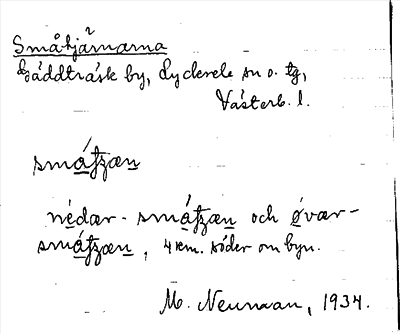 Småtjärnarna
Gäddträsk by, Lycksele sn o. tg,
Västerb. l.
smátʃzæn
nédær - smátʃzæn och øvær-
smátʃzæn, 4 km. söder om byn.
M. Neuman, 1934.